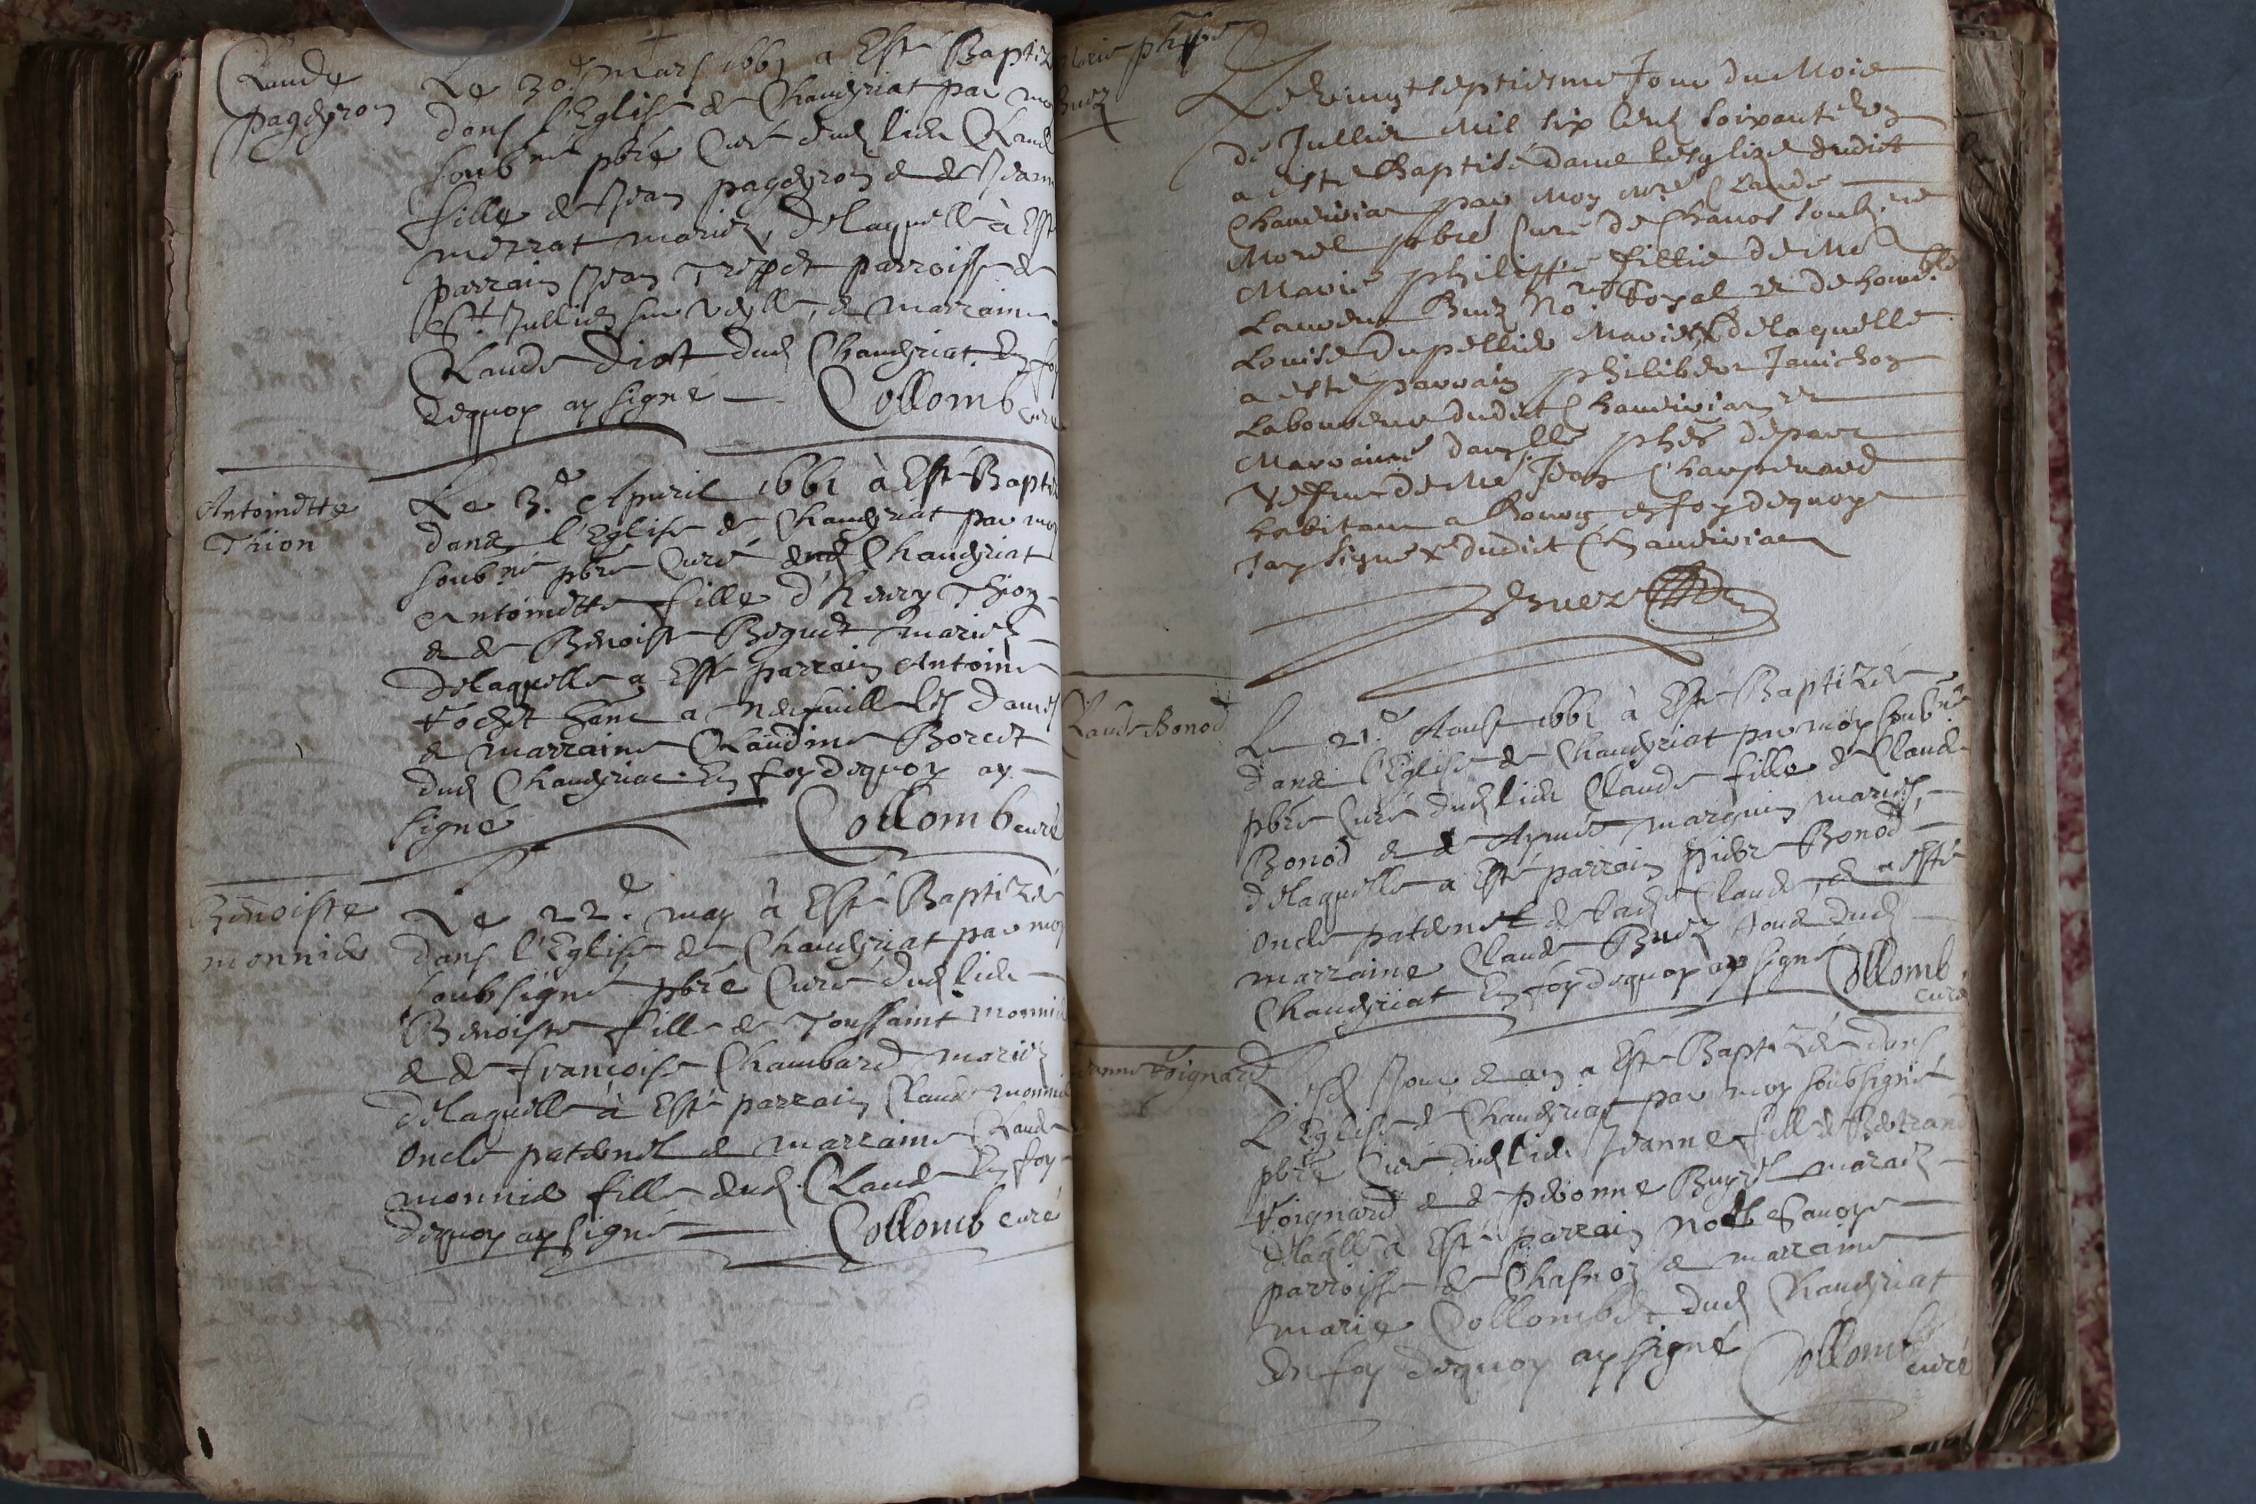 Claude
pageyron
Le 30e mars 1661 a Esté Baptiz
dans l'Eglise de Chaveyriat par mo
soubné pbre Curé dud lieu Claud
fille de Jean pageyron & de Jeann
merrat mariez, delaquelle à Esté
parrain Jean Trippet parroisse de
St Jullien sur veylle, & marraine
Claude Diot dud Chaveyriat En foy
dequoy ay signé Collomb curé
Antoinette
Thion
Le 3e Apvril 1661 à Esté Baptiz
dans l'Eglise de Chaveyriat par moy
soubné pbre Curé dud Chaveyriat
Antoinette fille d'Henry Thion
& de Benoiste Boguet mariez
Delaquelle a Esté parrain Antoine
Vochet a Neufville les dames
& marraine Claudine Boret
dud Chaveyriat En foy dequoy ay
signé Collomb curé
Benoiste
monnier
Le 22e may à Esté Baptizée
dans l'Eglise de Chaveyriat par moy
soubsigné pbre Curé dud lieu
Benoiste fille de Toussaint monnie
& de françoise Chambard mariez
delaquelle à Esté parrain Claude monnie
oncle paternel & marraine Claude
monnier fille dud Claude En foy
dequoy ay signé Collomb curé
Marie phpe
Buez
Le vingt septiesme Jour du Mois
de Jullier Mil six Cent soixante &
a esté Baptisé dans lesglize dudict
Chaveiria par Moy Mre Claude
Morel pbre Curé de Chanos soubné
Marie philippe fillie de Me
Laurent Buez Nore Royal et de honble
Louise Dupellier Mariez delaquelle
a esté parrain philibert Janichon
Laboureur dudict Chaveiria et
Marraine damlle phes depare
Vefve de Me Jean Charpenard
habitant a Bourg en foy dequoy
Jay signé dudict Chaveiria
Buez
Claude Bonod
Le 21e Aoust 1661 à Esté Baptizée
dans l'Eglise de Chaveyriat par moy soubné
pbre Curé dud lieu Claude fille de Claude
Bonod & d Aymée marguin mariez,
delaquelle a Esté parrain piebre Bonod
oncle paternel de lad Claude, & a esté
marraine Claude Buez tous dud
Chaveyriat En foy dequoy ay signé Collomb
curé
Jeanne Voignard
Lesd Jour & an a Esté Baptizée dans
L'Eglise de Chaveyriat par moy soubsigné
pbre Curé dud lieu Jeanne fille de Bertrand
Voignard & de pevonne Buyret mariez
delaqlle a Esté parrain Noel Savoye
parroisse de Chasnoz & marraine
marie Collombet dud Chaveyriat
En foy dequoy ay signé Collomb
curé